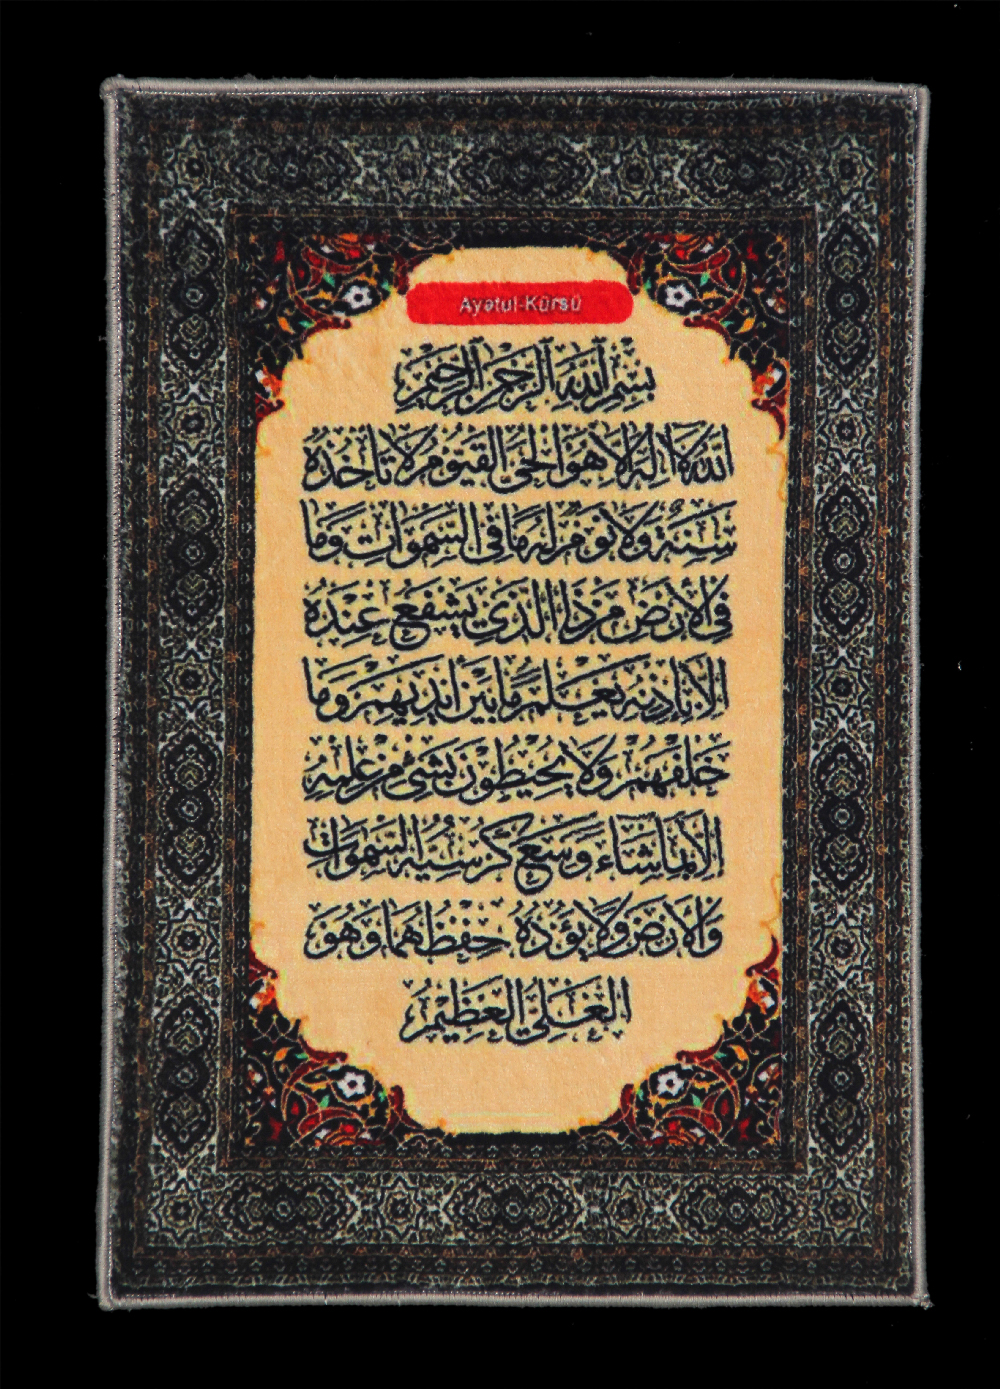 Ayətul-Kürsü
بسم الله الرحمن الرحيم
الله لا اله الا هو الحي القيوم لا تاخذه
سنة ولا نوم له ما في السموات وما
في الارض من ذا الذي يشفع عنده
الا باذنه يعلم ما بين ايديهم وما
خلفهم ولا يحيطون بشئ من علمه
الا بما شاء وسع كرسيه السموات
والارض ولا يؤده حفظهما وهو
العلي العظيم